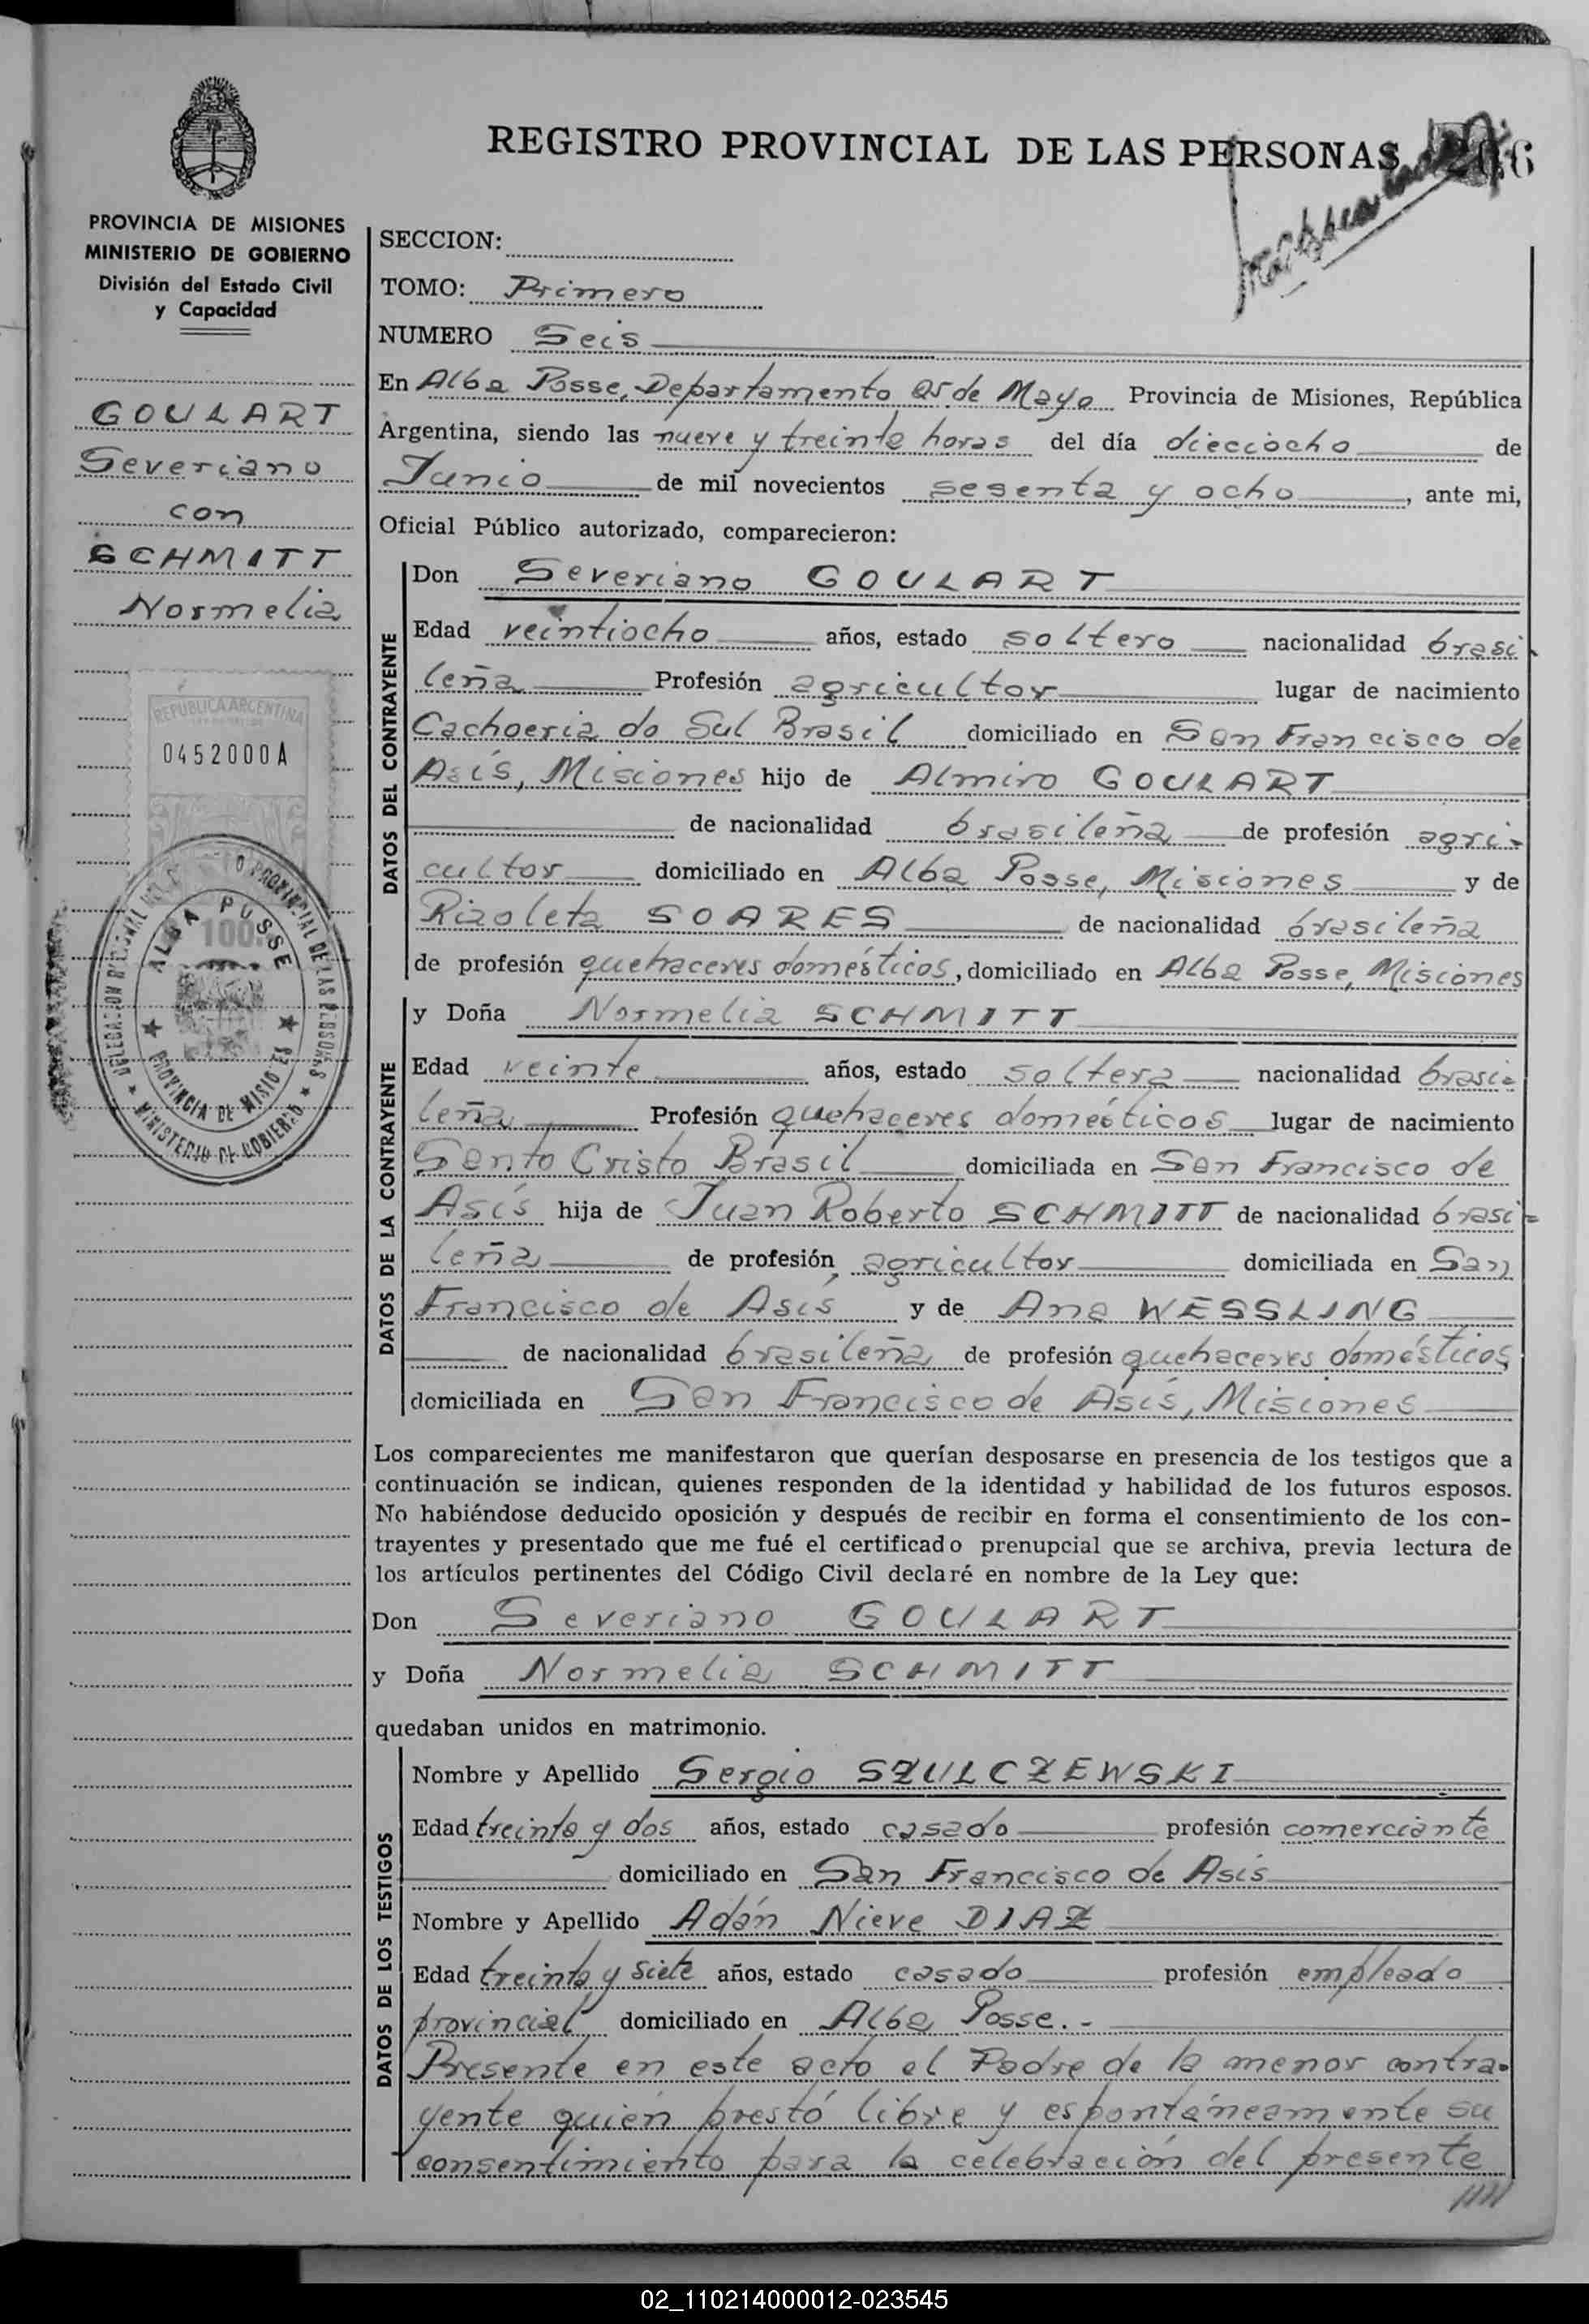 REGISTRO PROVINCIAL DE LAS PERSONAS
PROVINCIA DE MISIONES
MINISTERIO DE GOBIERNO
División del Estado Civil
y Capacidad
GOULART
Severiano
con
SCHMITT
Normelia
REPUBLICA ARGENTINA
0452000A
100
ALBA POSSE
PROVINCIA DE MISIONES
MINISTERIO DE GOBIERNO
SECCION:
TOMO: Primero
NUMERO Seis
En Alba Posse, Departamento 25 de Mayo Provincia de Misiones, República
Argentina, siendo las nueve y treinta horas del día dieciocho de
Junio de mil novecientos sesenta y ocho, ante mi,
Oficial Público autorizado, comparecieron:
DATOS DEL CONTRAYENTE
Don Severiano GOULART
Edad veintiocho años, estado soltero nacionalidad brasi-
leña Profesión agricultor lugar de nacimiento
Cachoeria do Sul Brasil domiciliado en San Francisco de
Asís, Misiones hijo de Almiro GOULART
de nacionalidad brasileña de profesión agri-
cultor domiciliado en Alba Posse, Misiones y de
Rizoleta SOARES de nacionalidad brasileña
de profesión quehaceres domésticos, domiciliado en Alba Posse, Misiones
DATOS DE LA CONTRAYENTE
y Doña Normelia SCHMITT
Edad veinte años, estado soltera nacionalidad brasi-
leña Profesión quehaceres domésticos lugar de nacimiento
Santo Cristo Brasil domiciliada en San Francisco de
Asís hija de Juan Roberto SCHMITT de nacionalidad brasi-
leña de profesión agricultor domiciliada en San
Francisco de Asís y de Ana WESSLING
de nacionalidad brasileña de profesión quehaceres domésticos
domiciliada en San Francisco de Asís, Misiones
Los comparecientes me manifestaron que querían desposarse en presencia de los testigos que a
continuación se indican, quienes responden de la identidad y habilidad de los futuros esposos.
No habiéndose deducido oposición y después de recibir en forma el consentimiento de los con-
trayentes y presentado que me fué el certificado prenupcial que se archiva, previa lectura de
los artículos pertinentes del Código Civil declaré en nombre de la Ley que:
Don Severiano GOULART
y Doña Normelia SCHMITT
quedaban unidos en matrimonio.
DATOS DE LOS TESTIGOS
Nombre y Apellido Sergio SZULCZEWSKI
Edad treinta y dos años, estado casado profesión comerciante
domiciliado en San Francisco de Asís
Nombre y Apellido Adán Nieve DIAZ
Edad treinta y siete años, estado casado profesión empleado
provincial domiciliado en Alba Posse.-
Presente en este acto el Padre de la menor contra-
yente quien prestó libre y espontáneamente su
consentimiento para la celebración del presente
////
02_110214000012-023545